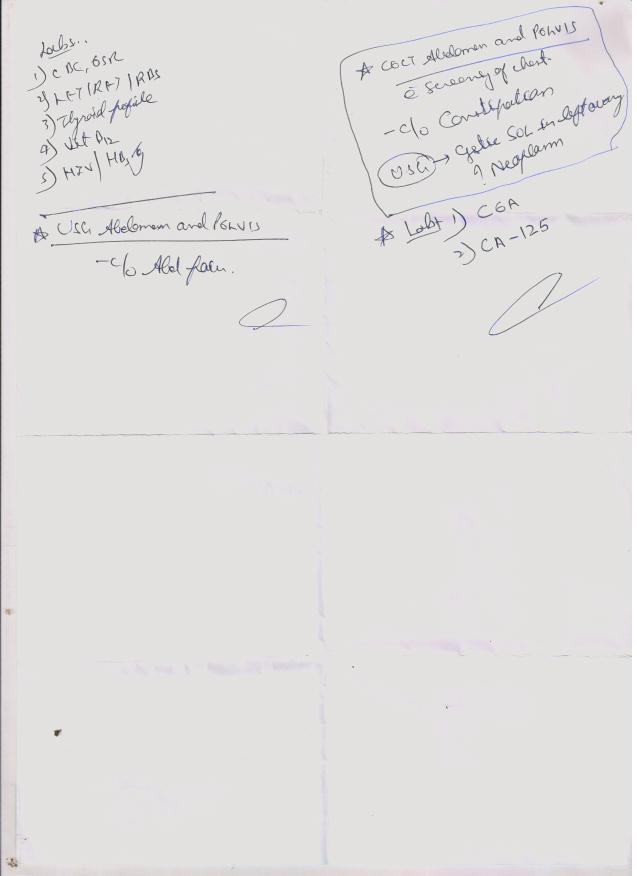 Labs..
1) CBC, ESR
2) LFT/RFT/RBS
3) Thyroid profile
4) Vit B12
5) HIV/HBsAg
USG Abdomen and PELVIS
-c/o Abd pain.
CECT Abdomen and PELVIS
c̄ screening of chest
-c/o Constipation
USG → Cystic SOL in left ovary
? Neoplasm
Labs 1) CEA
2) CA-125